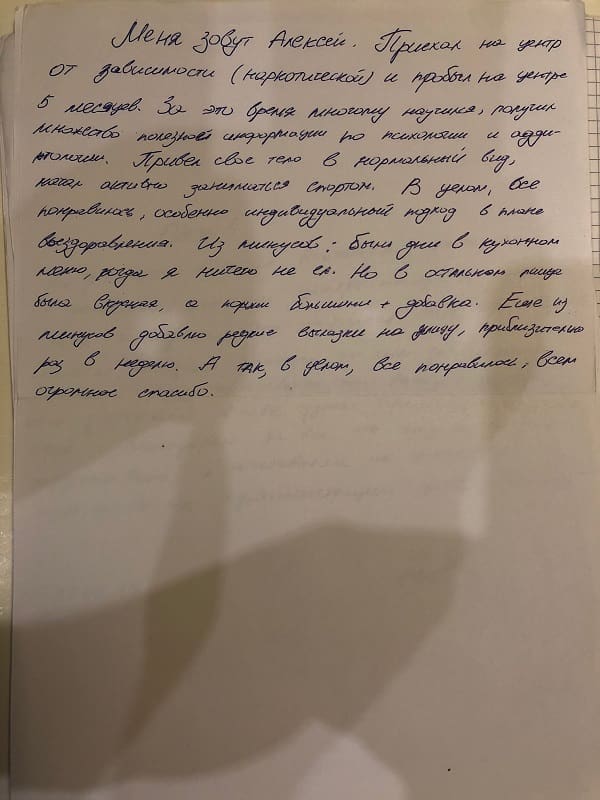 Меня зовут Алексей. Приехал на центр
от зависимости (наркотической) и пробыл на центре
5 месяцев. За это время многому научился, получил
множество полезной информации по психологии и адди-
ктологии. Привел свое тело в нормальный вид,
начал активно заниматься спортом. В целом, все
понравилось, особенно индивидуальный подход в плане
выздоравления. Из минусов: были дни в кухонном
меню, когда я ничего не ел. Но в остальном пища
была вкусная, а порции большими + добавка. Еще из
минусов добавлю редкие вылазки на улицу, приблизительно
раз в неделю. А так, в целом, все понравилось, всем
огромное спасибо.